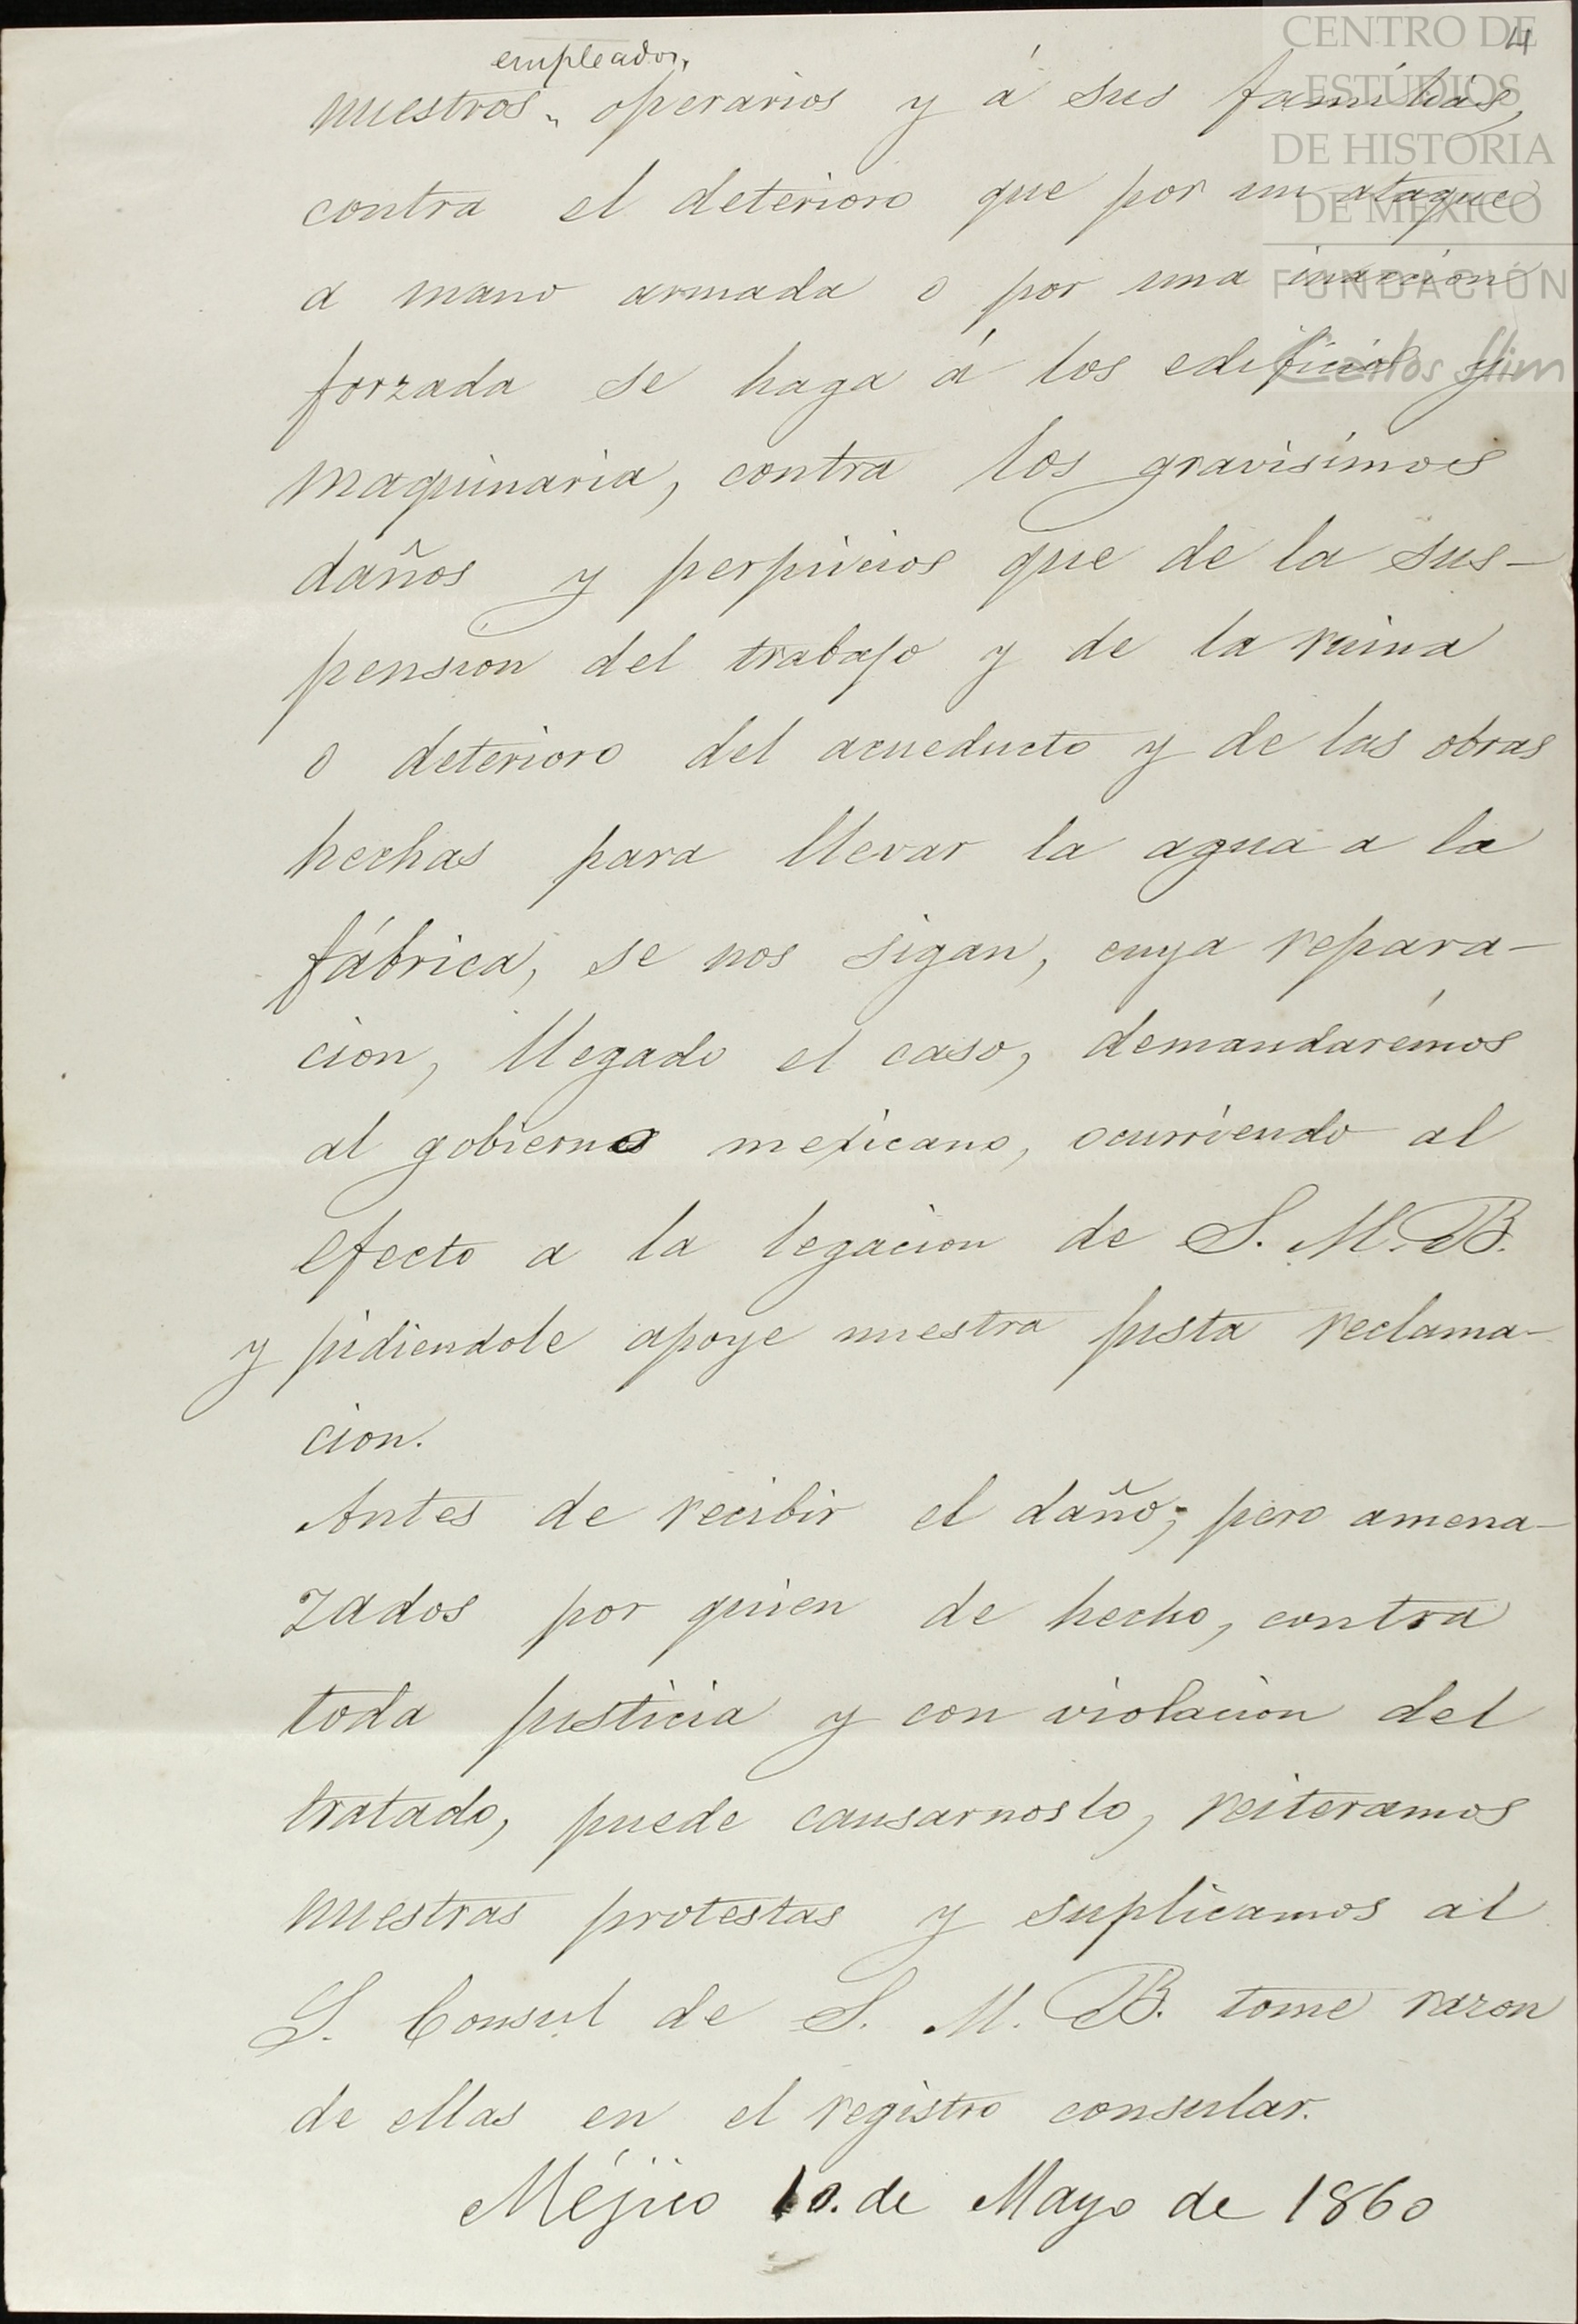 4
empleados,
nuestros „ operarios y á sus familias,
contra el deterioro que por un ataque
a mano armada o por una inaccion
forzada se haga á los edificios y
maquinaria, contra los gravisímos
daños y perjuicios que de la sus-
pension del trabajo y de la ruina
o deterioro del acueducto y de las obras
hechas para llevar la agua a la
fábrica, se nos sigan, cuya repara-
cion, llegado el caso, demandarémos
al gobierno mexicano, ocurriendo al
efecto a la legacion de S. M. B.
y pidiendole apoye nuestra justa reclama-
cion.
Antes de recibir el daño; pero amena-
zados por quien de hecho, contra
toda justicia y con violacion del
tratado, puede causarnoslo, reiteramos
nuestras protestas y suplicamos al
S. Consul de S. M. B. tome razon
de ellas en el registro consular.
Méjico 10. de Mayo de 1860
CENTRO DE
ESTUDIOS
DE HISTORIA
DE MÉXICO
FUNDACIÓN
Carlos Slim